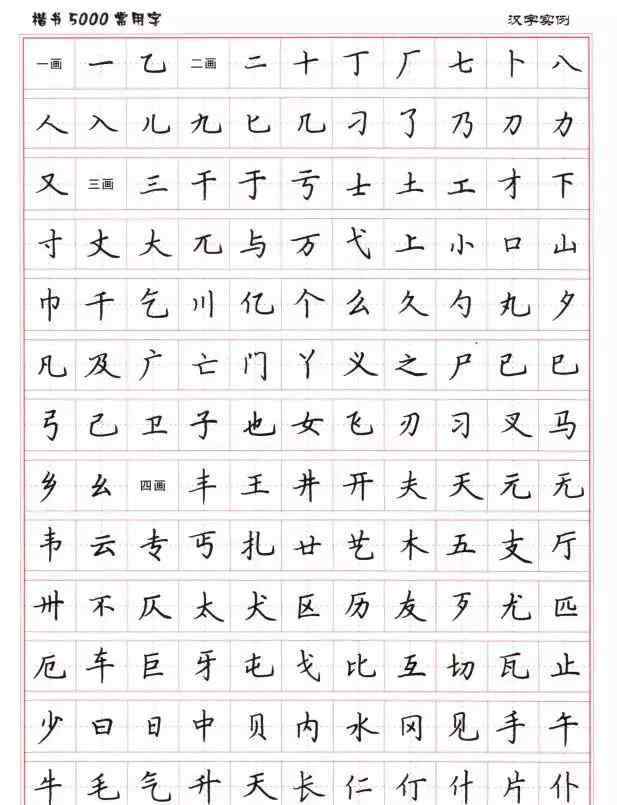 楷书5000常用字 汉字实例
一画 一 乙 二画 二 十 丁 厂 七 卜 八
人 入 儿 九 匕 几 刁 了 乃 刀 力
又 三画 三 干 于 亏 士 土 工 才 下
寸 丈 大 兀 与 万 弋 上 小 口 山
巾 千 乞 川 亿 个 么 久 勺 丸 夕
凡 及 广 亡 门 丫 义 之 尸 已 巳
弓 己 卫 子 也 女 飞 刃 习 叉 马
乡 幺 四画 丰 王 井 开 夫 天 元 无
韦 云 专 丐 扎 廿 艺 木 五 支 厅
卅 不 仄 太 犬 区 历 友 歹 尤 匹
厄 车 巨 牙 屯 戈 比 互 切 瓦 止
少 曰 日 中 贝 内 水 冈 见 手 午
牛 毛 气 升 夭 长 仁 仃 什 片 仆